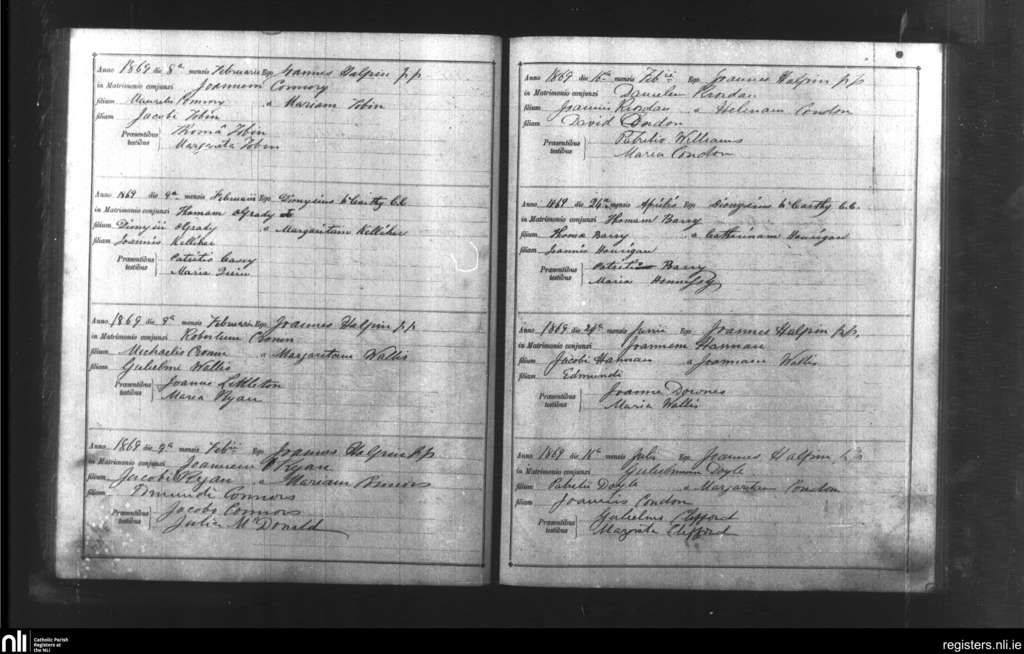 Anno 1869 die 8a mensis Februarii Ego Joannes Halpin p.p.
in Matrimonio conjunxi Joannem Connory
filium Connory & Mariam Tobin
filiam Jacobi Tobin
Præsentibus testibus Thomâ Tobin
Margarita Tobin
Anno 1869 die 9a mensis Februarii Ego Dionysius McCarthy C.C.
in Matrimonio conjunxi Thomam OGrady
filium Dionysii OGrady & Margaritam Kelliher
filiam Joannis Kelliher
Præsentibus testibus Patritio Casey
Maria
Anno 1869 die 9a mensis Februarii Ego Joannes Halpin p.p.
in Matrimonio conjunxi Robertum Cronin
filium Michaelis Cronin & Margaritam Wallis
filiam Gulielmi Wallis
Præsentibus testibus Joanne Littleton
Maria Ryan
Anno 1869 die 9a mensis Feb Ego Joannes Halpin p.p.
in Matrimonio conjunxi Joannem Ryan
filium Jacobi Ryan & Mariam Connors
filiam Edmundi Connors
Præsentibus testibus Jacobo Connors
Julia McDonald
Anno 1869 die 16a mensis Feb Ego Joannes Halpin p.p.
in Matrimonio conjunxi Danielem Riordan
filium Joannis Riordan & Helenam Condon
filiam David Condon
Præsentibus testibus Patritio Williams
Maria Condon
Anno 1869 die 26a mensis Aprilis Ego Dionysius McCarthy C.C.
in Matrimonio conjunxi Thomam Barry
filium Thoma Barry & Catharinam Hourigan
filiam Joannis Hourigan
Præsentibus testibus Patritio Barry
Maria Hennessy
Anno 1869 die 24a mensis Junii Ego Joannes Halpin p.p.
in Matrimonio conjunxi Joannem Hannan
filium Jacobi Hannan & Joannam Wallis
filiam Edmundi
Præsentibus testibus Joanna Downes
Maria Wallis
Anno 1869 die 16a mensis Julii Ego Joannes Halpin p.p.
in Matrimonio conjunxi Gulielmum Doyle
filium Patritii Doyle & Margaritam Condon
filiam Joannis Condon
Præsentibus testibus Gulielmo Clifford
Margarita Clifford
nli
Catholic Parish
Registers at
the NLI
registers.nli.ie